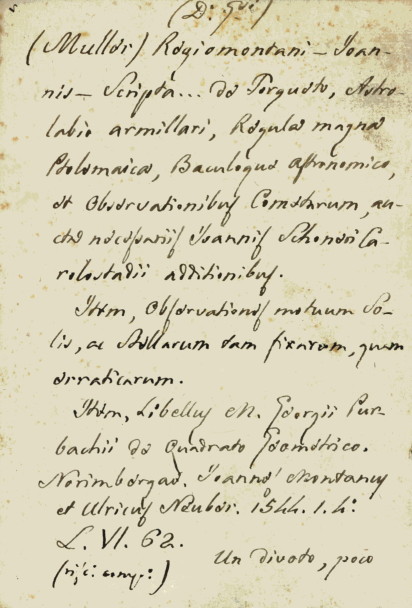 (D: Gui)
(Muller) Regiomontani – Joan-
nis – Scripta... de Torqueto, Astro-
labio armillari, Regula magna
Ptolemaica, Baculoque Astronomico,
et Observationibus Cometarum, au-
cta necessariis Joannis Schoneri Ca-
rolostadii additionibus.
Item, Observationes motuum So-
lis, ac Stellarum tam fixarum, quam
erraticarum.
Item, Libellus M. Georgii Pur-
bachii de Quadrato Geometrico.
Norimbergae. Joannes Montanus
et Ulricus Neuber. 1544. 1. 4:
L. VI. 62.
Un divoto, poco